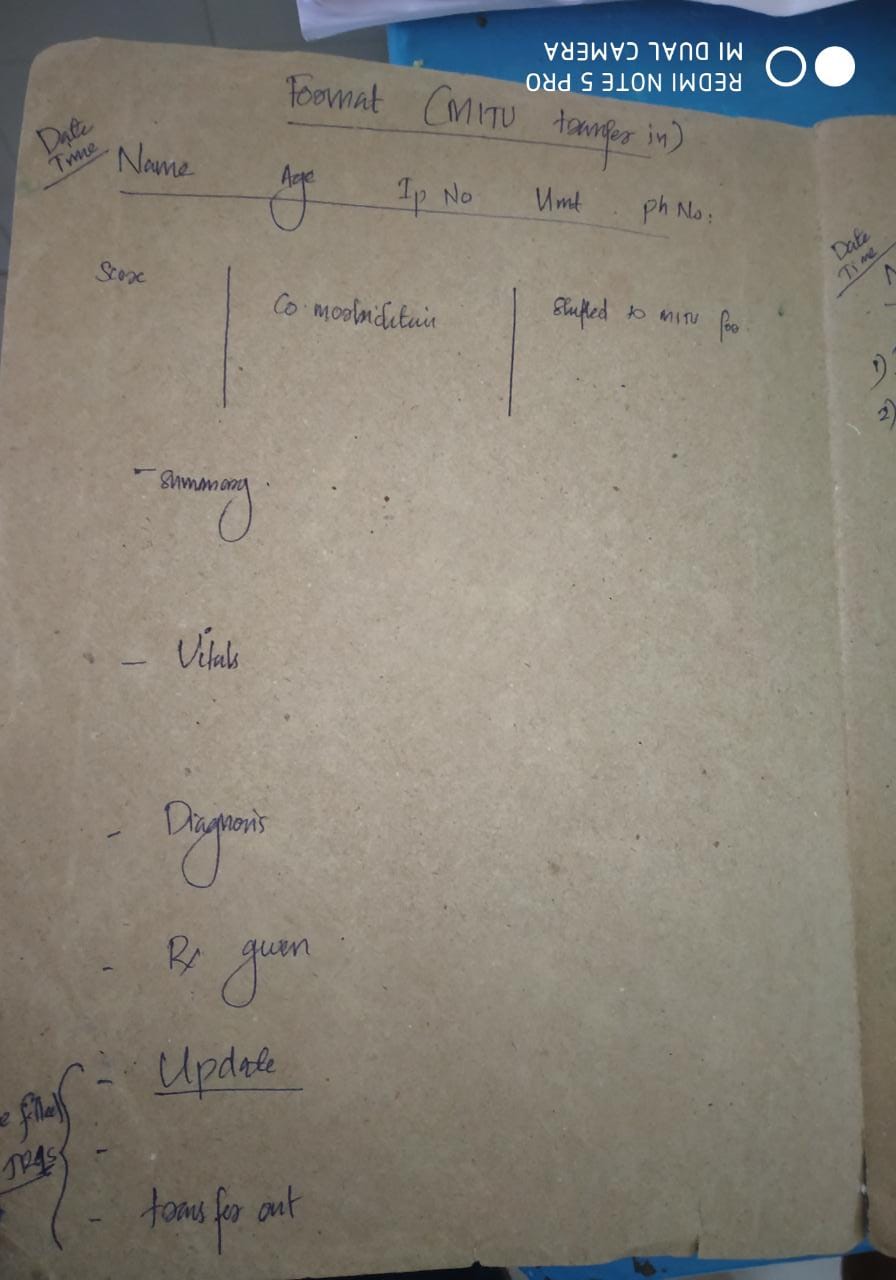 REDMI NOTE 5 PRO
MI DUAL CAMERA
Format (MITU transfer in)
Date
Time
Name Age Ip No Unit ph No:
Score
Co-morbidities
Shifted to MITU for
- Summary.
- Vitals
- Diagnosis
- Rx given
- Update
-
- transfer out
e filled
JR1s
Date
Time
1)
2)